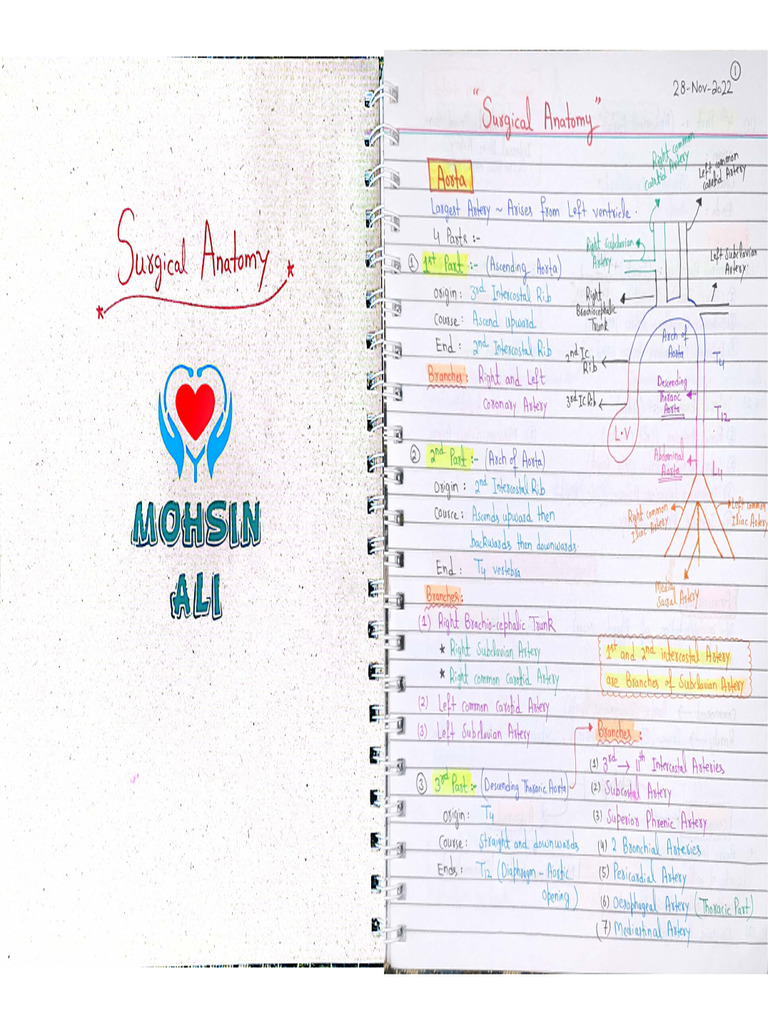 Surgical Anatomy
MOHSIN
ALI
1
28-Nov-2022
"Surgical Anatomy"
Aorta
Largest Artery ~ Arises from Left ventricle.
4 Parts :-
① 1st Part :- (Ascending Aorta)
Origin : 3rd Intercostal Rib
Course : Ascend upward
End : 2nd Intercostal Rib
Branches : Right and Left
Coronary Artery
② 2nd Part :- (Arch of Aorta)
Origin : 2nd Intercostal Rib
Course : Ascends upward then
backwards then downwards.
End : T4 vertebra
Branches :
(1) Right Brachio-cephalic Trunk
* Right Subclavian Artery
* Right common Carotid Artery
(2) Left common Carotid Artery
(3) Left Subclavian Artery
③ 3rd Part :- (Descending Thoracic Aorta)
Origin : T4
Course : Straight and downwards
Ends : T12 (Diaphragm - Aortic
opening)
Right common
carotid Artery
Left common
carotid Artery
Right subclavian
Artery
Left Subclavian
Artery
Right
Brachiocephalic
Trunk
Arch of
Aorta
2nd IC
Rib
T4
Descending
Thoracic
Aorta
3rd IC Rib
T12
L.V
Abdominal
Aorta
L4
Right common
iliac Artery
Left common
Iliac Artery
Median
Sacral Artery
1st and 2nd intercostal Artery
are Branches of Subclavian Artery
Branches :
(1) 3rd → 11th Intercostal Arteries
(2) Subcostal Artery
(3) Superior Phrenic Artery
(4) 2 Bronchial Arteries
(5) Pericardial Artery
(6) Oesophageal Artery (Thoracic Part)
(7) Mediastinal Artery